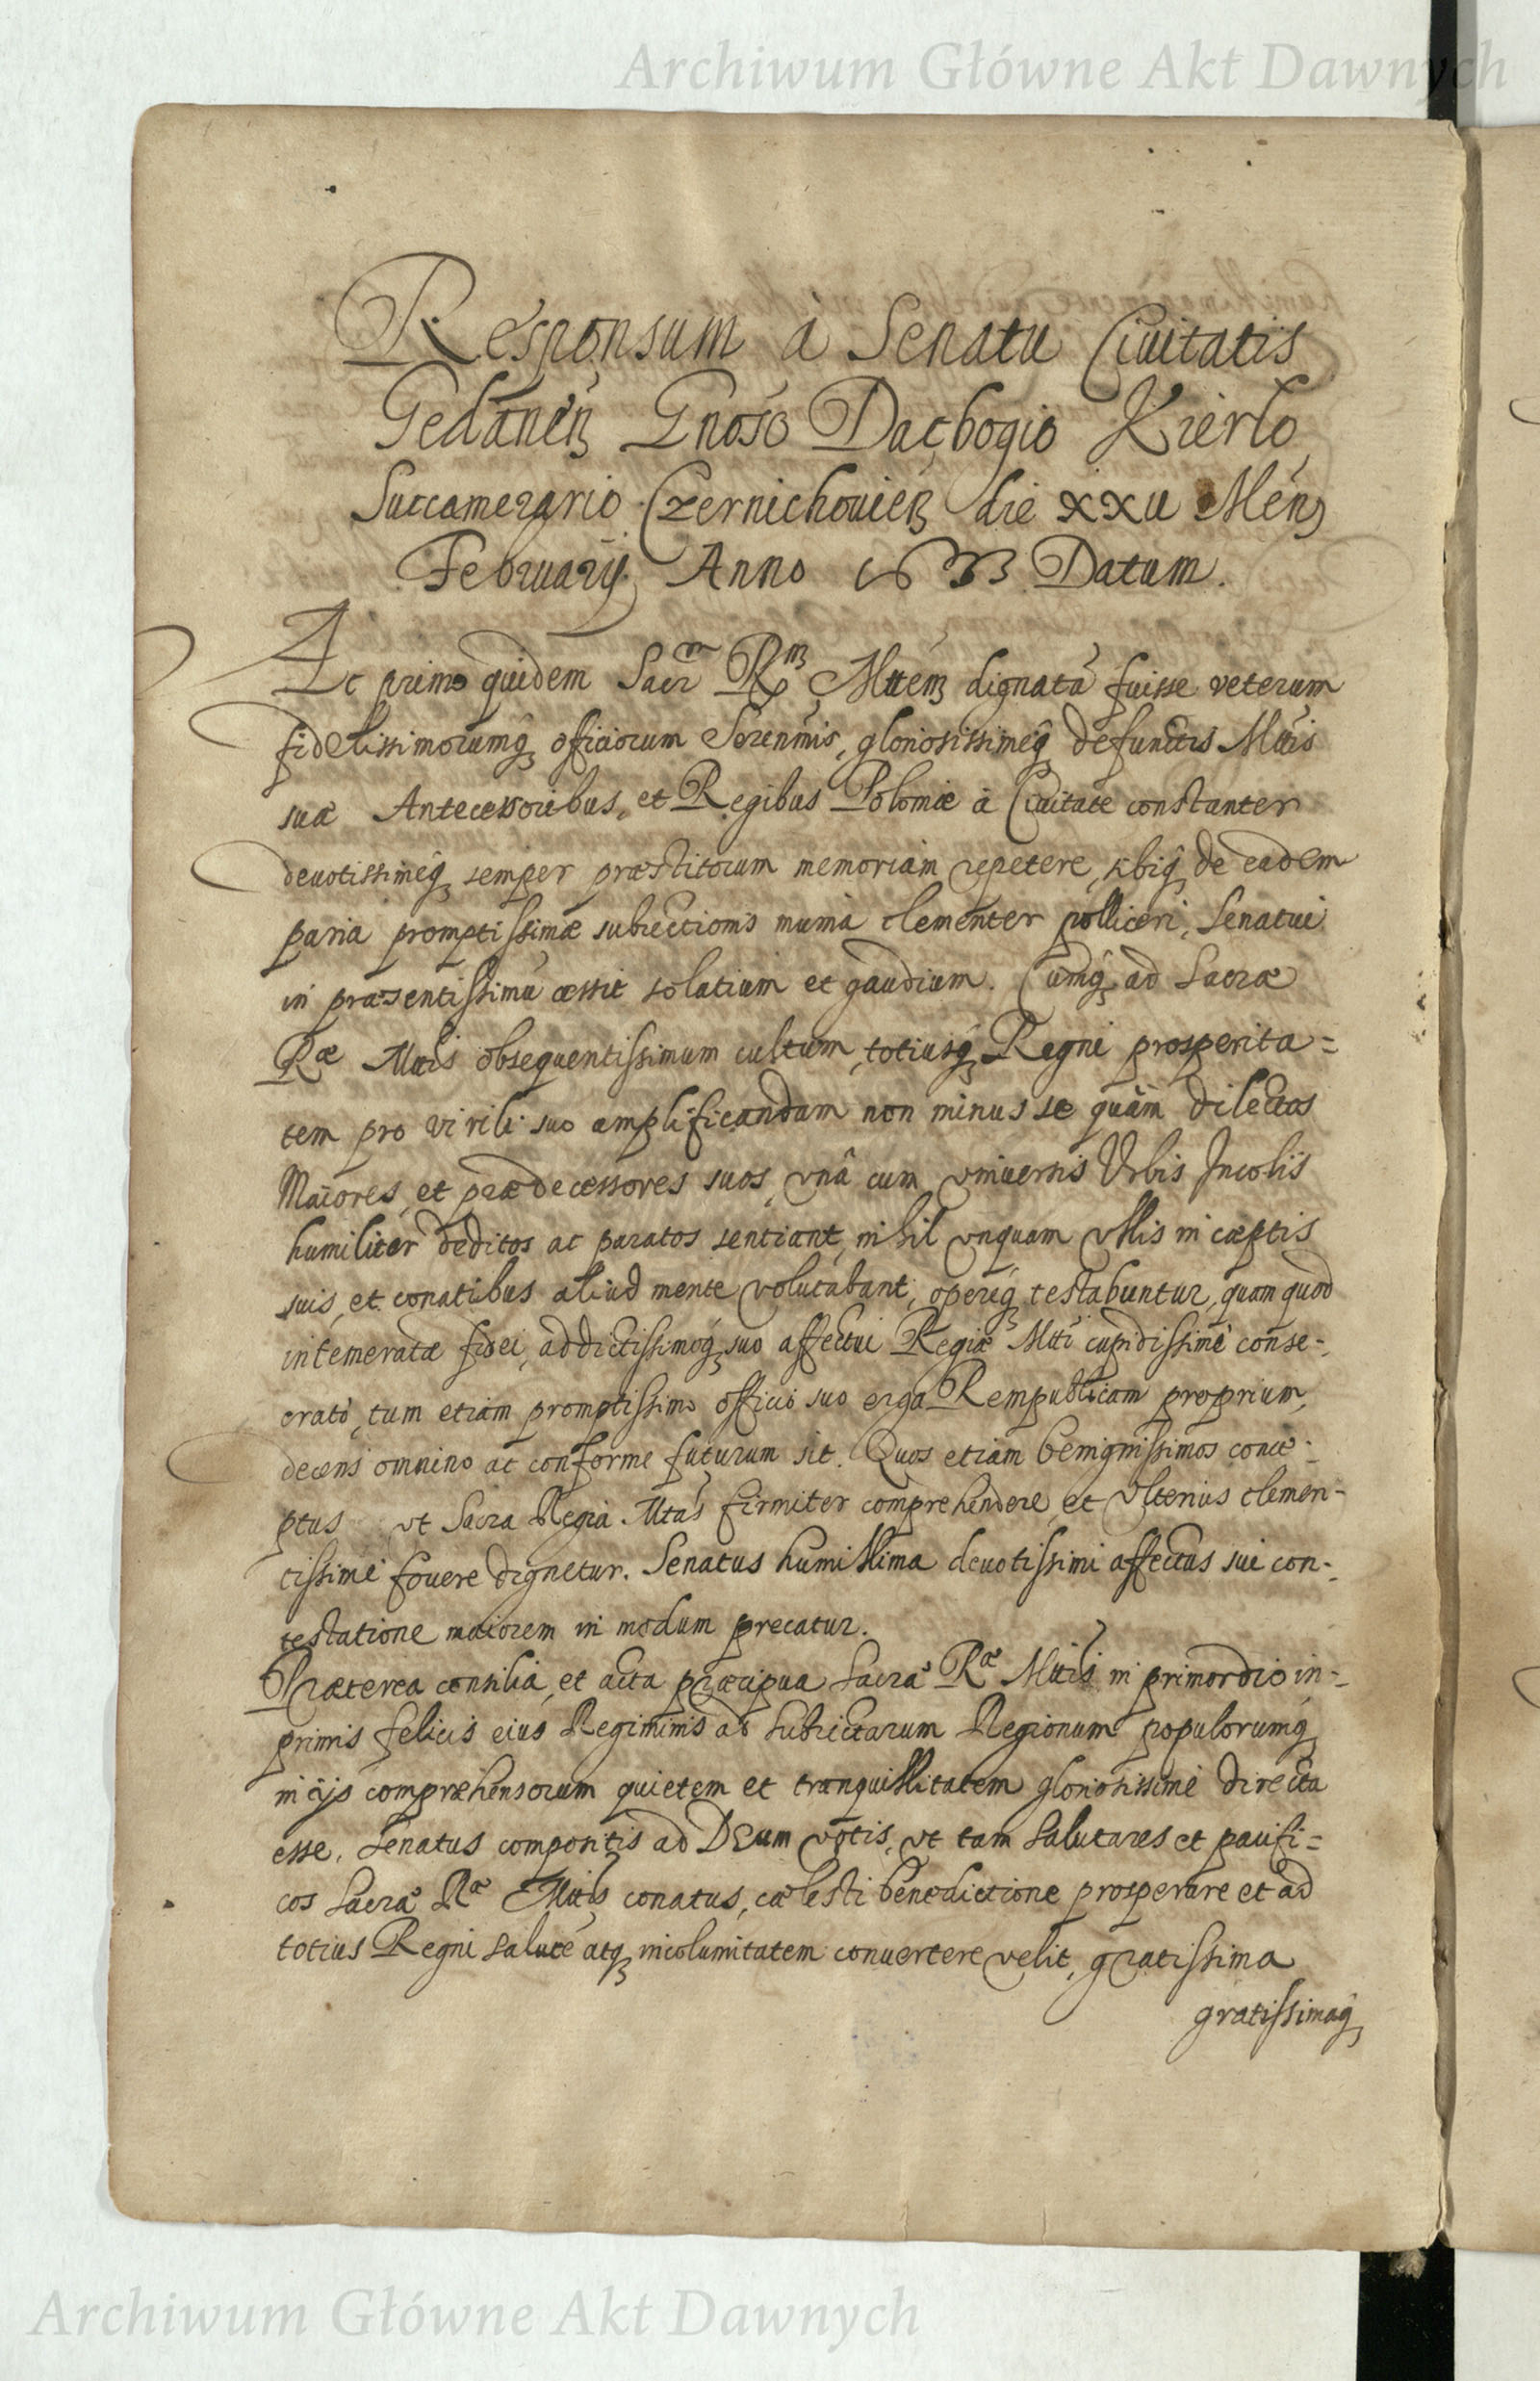 Archiwum Główne Akt Dawnych
Responsum à Senatu Ciuitatis
Gedanen̄ Gnoso Dacbogio Kierło
Succamerario Czernichouien̄ die xxv Men̄
Februarij Anno 1633 Datum.
Ac primo quidem Sacrm Rm Mttem dignatā fuisse veterum
fidelissimorumq̃ officiorum Serenmis, gloriosissimeq̃ defunctis Mttis
suæ Antecessoribus, et Regibus Poloniæ à Ciuitate constanter
deuotissimeq̃ semper præstitorum memoriam repetere, sibiq̃ de eadem
paria promptissimæ subiectionis munia clementer polliceri, Senatui
in præsentissimū cessit solatium et gaudium. Cumq̃ ad Sacræ
Ræ Mttis obsequentissimum cultum, totiusq̃ Regni prosperita=
tem pro virili suo amplificandam non minus se quàm dilectos
Maiores, et prædecessores suos, vnâ cum vniuersis Vrbis Incolis
humiliter deditos ac paratos sentiant, nihil vnquam vllis in cæptis
suis, et conatibus aliud mente volutabant, opereq̃ testabuntur, quam quod
intemeratæ fidei, addictissimoq̃ suo affectui Regiæ Mtti cupidissimè conse=
crato, tum etiam promptissimo officio suo erga Rempublicam proprium,
decens omnino ac conforme futurum sit. Quos etiam benignissimos conce=
ptus vt Sacra Regia Mtas firmiter comprehendere, et vlterius clemen=
tissimè fouere dignetur. Senatus humillima deuotissimi affectus sui con=
testatione maiorem in modum precatur.
Præterea consilia, et acta præcipua Sacræ Ræ Mttis in primordio in=
primis felicis eius Regiminis ad subiectarum Regionum populorumq̃
in ijs comprehensorum quietem et tranquillitatem gloriosissimè directa
esse, Senatus compositis ad DEum votis, vt tam salutares et pacifi=
cos Sacræ Ræ Mttis conatus, cælesti benedictione prosperare et ad
totius Regni salutē atq̃ incolumitatem conuertere velit, gratissima
gratissimaq̃
Archiwum Główne Akt Dawnych